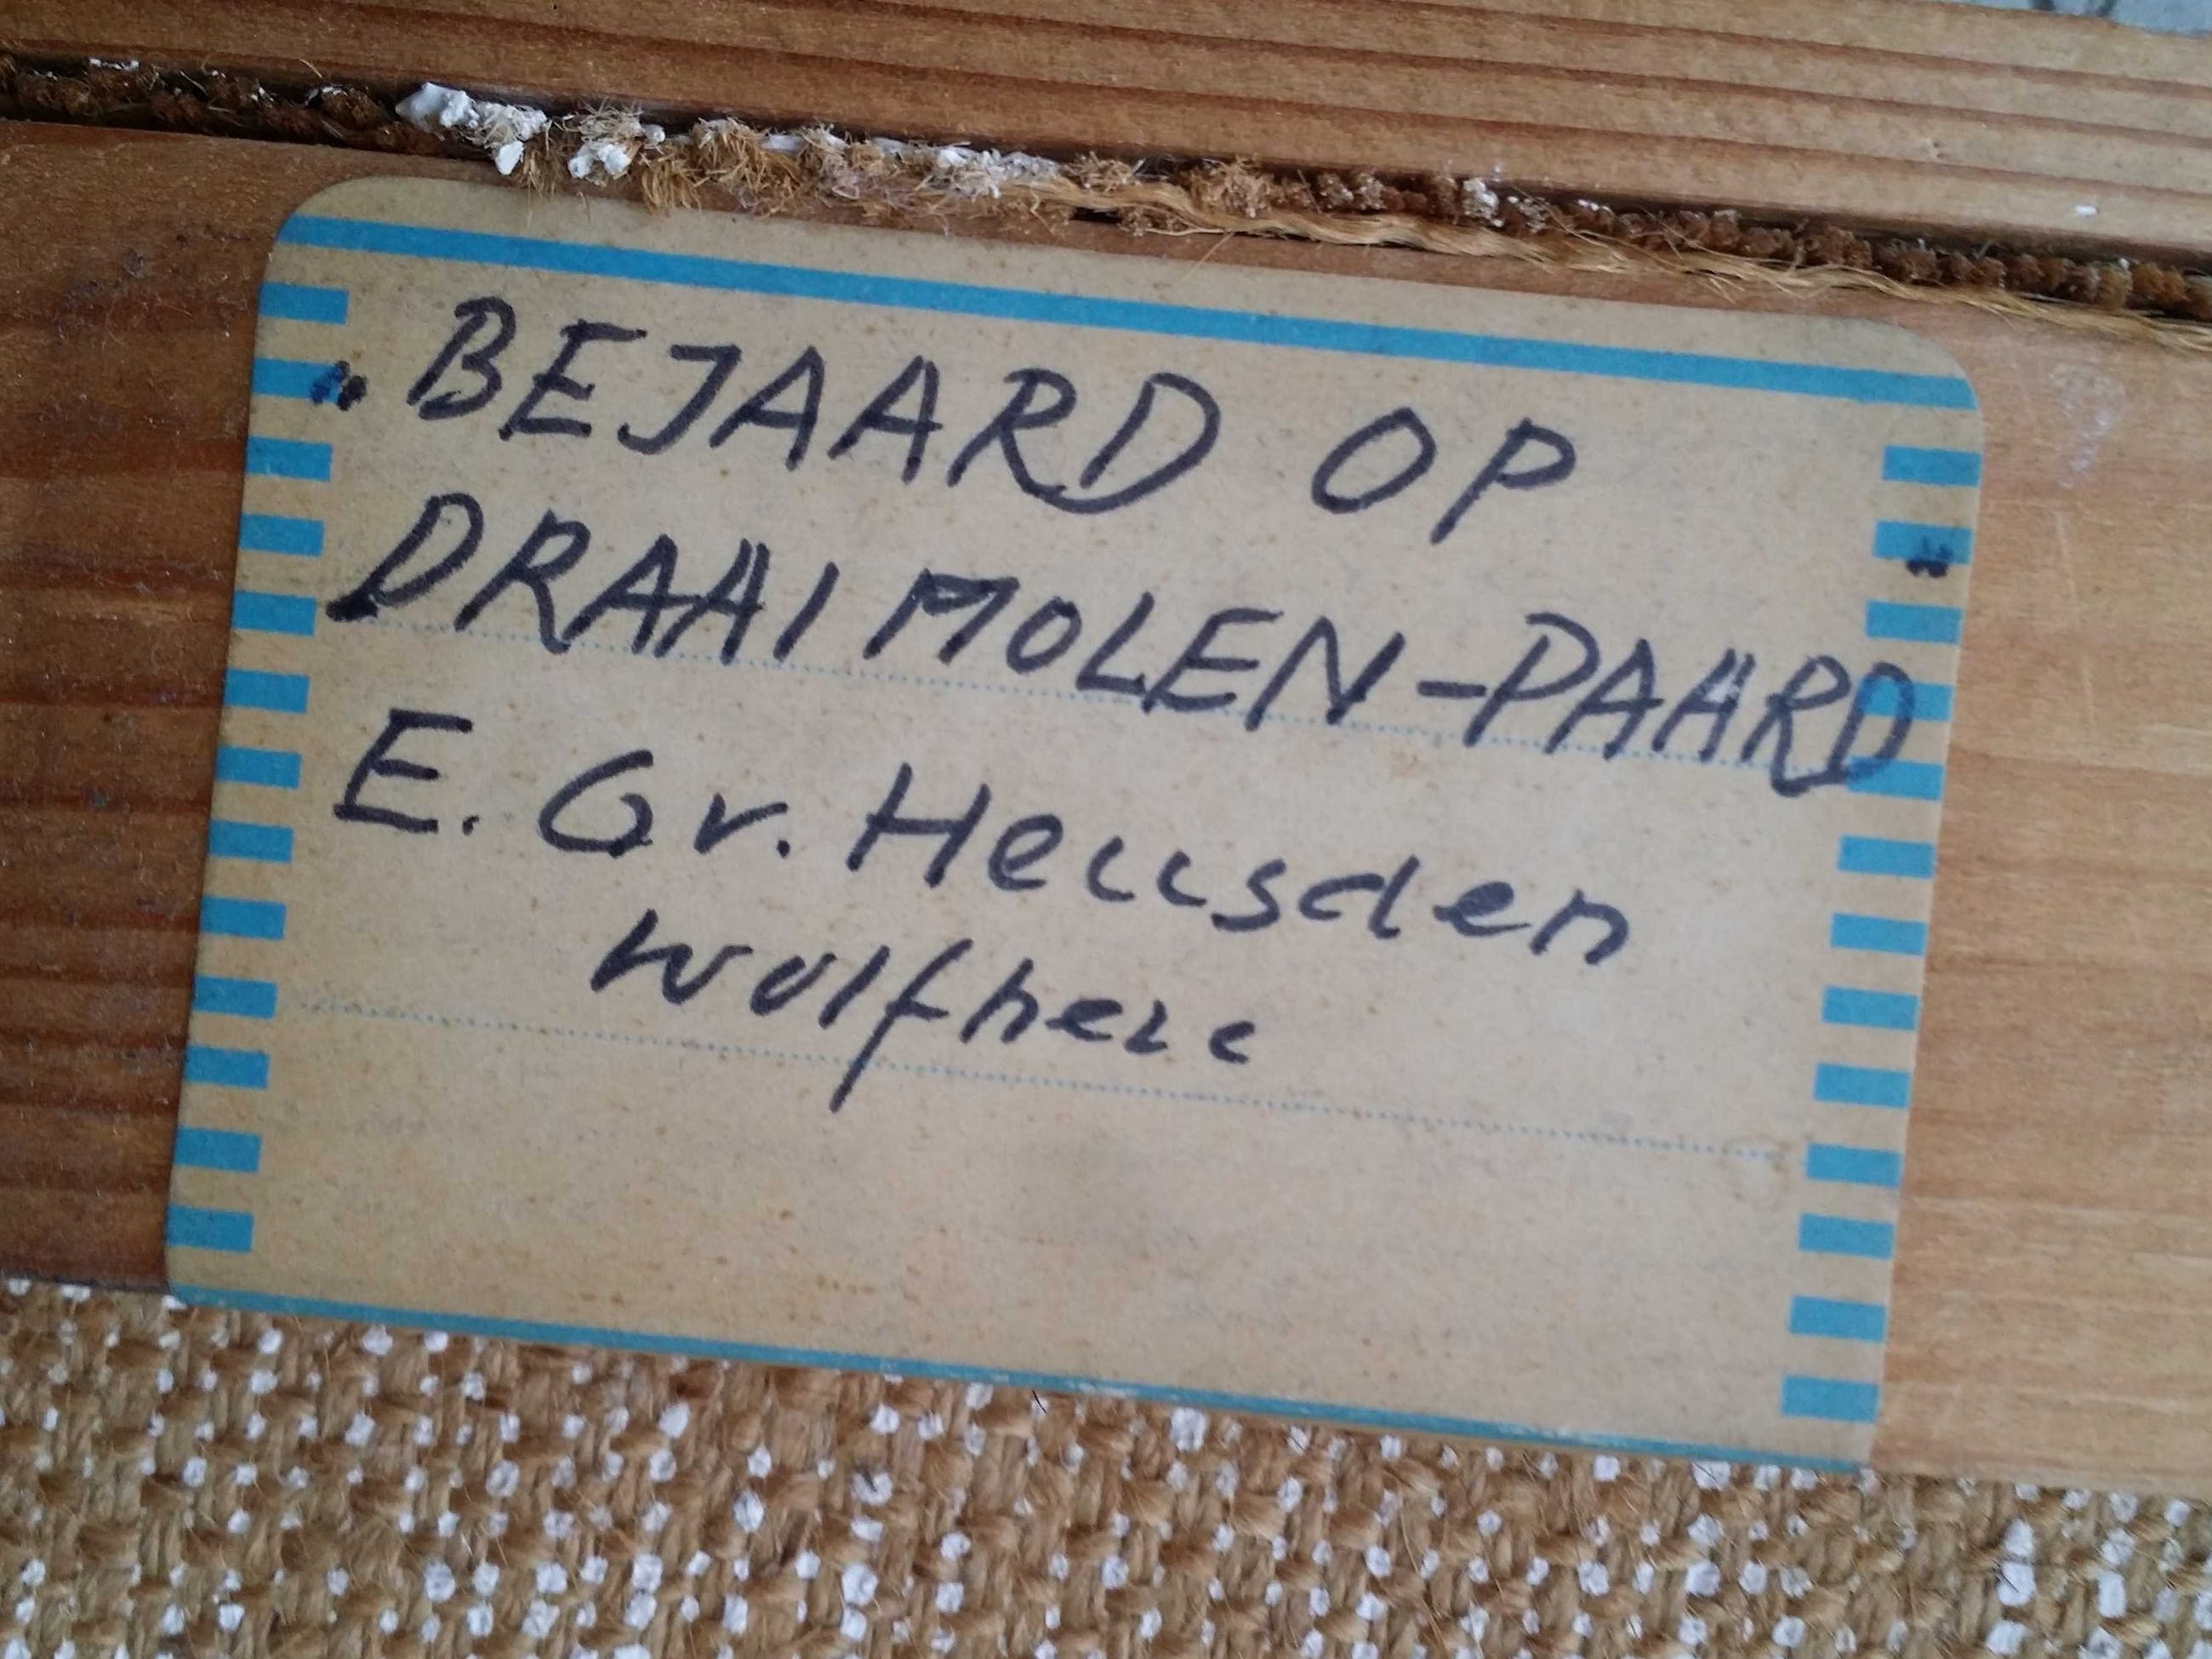 „BEJAARD OP
DRAAIMOLEN-PAARD"
E. Gv. Heusden
Wolfheze